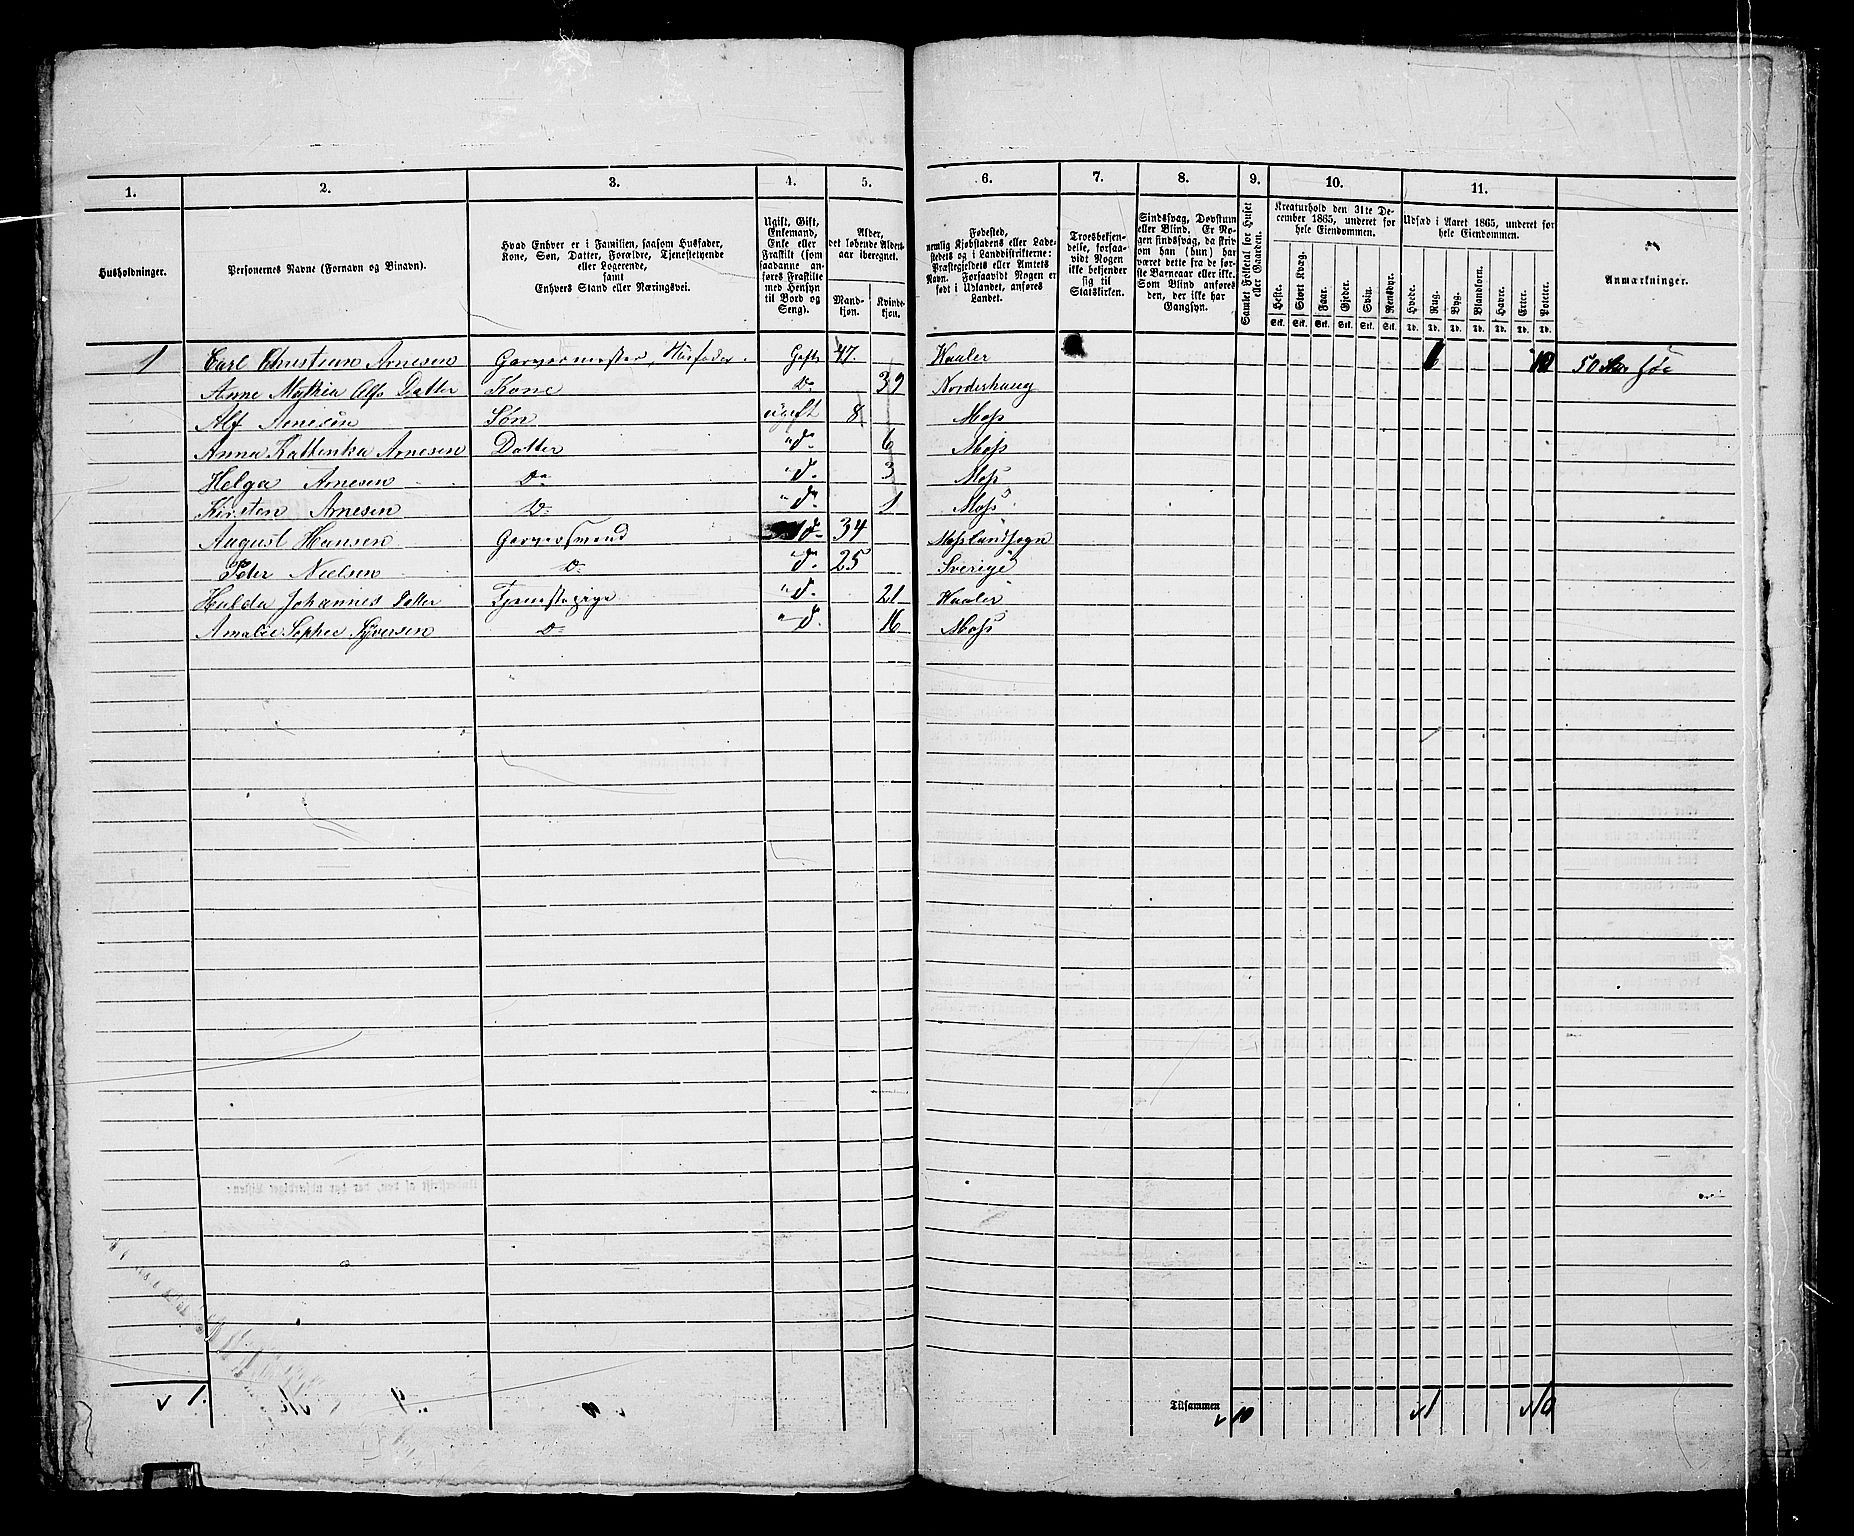 1. 2. 3. 4. 5. 6. 7. 8. 9. 10. 11.
Husholdninger.
Personernes Navne (Fornavn og Binavn).
Hvad Enhver er i Familien, saasom Husfader,
Kone, Søn, Datter, Forældre, Tjenestetyende
eller Logerende,
samt
Enhvers Stand eller Næringsvei.
Ugift, Gift,
Enkemand,
Enke eller
Fraskilt (som
saadanne an-
føres Fraskilte
med Hensyn
til Bord og
Seng).
Alder,
det løbende Alders-
aar iberegnet.
Mand-
kjøn.
Kvinde-
kjøn.
Fødested,
nemlig Kjøbstadens eller Lade-
stedets og i Landdistrikterne:
Præstegjeldets eller Amtets
Navn. Forsaavidt Nogen er
født i Udlandet, anføres
Landet.
Troesbekjen-
delse, forsaa-
vidt Nogen
ikke bekjender
sig til
Statskirken.
Sindssvag, Døvstum
eller Blind. Er No-
gen sindssvag, da skriv
om han (hun) har
været dette fra de før-
ste Barneaar eller ikke.
Som Blind anføres
den, der ikke har
Gangsyn.
Samlet Folketal for Huset
eller Gaarden.
Kreaturhold den 31te De-
cember 1865, underet for
hele Eiendommen.
Heste. Stort Kvæg. Faar. Gjeder. Svin. Rensdyr.
Stk. Stk. Stk. Stk. Stk. Stk.
Udsæd i Aaret 1865, underet for
hele Eiendommen.
Hvede. Rug. Byg. Blandkorn. Havre. Erter. Poteter.
Td. Td. Td. Td. Td. Td. Td.
Anmærkninger.
1 Carl Christian Arnesen Garvermester, Husfader. Gift 47. Vaaler 1 10 50
Anne Mathia Alfs Datter Kone Do 39 Norderhaug
Alf Arnesen Søn ugift 8 Moss
Anna Kathinka Arnesen Datter "d" 6 Moss
Helga Arnesen Do "d" 3 Moss
Kirsten Arnesen Do "d" 1 Moss
August Hansen Garversvend "d" 34 Moss landsogn
Peter Nielsen Do "d" 25 Sverige
Hulda Johannes Datter Tjenestepige "d" 21 Vaaler
Amalie Sophie Syversen Do "d" 16 Moss
Tilsammen
v 1. v 10 v 1 v 10